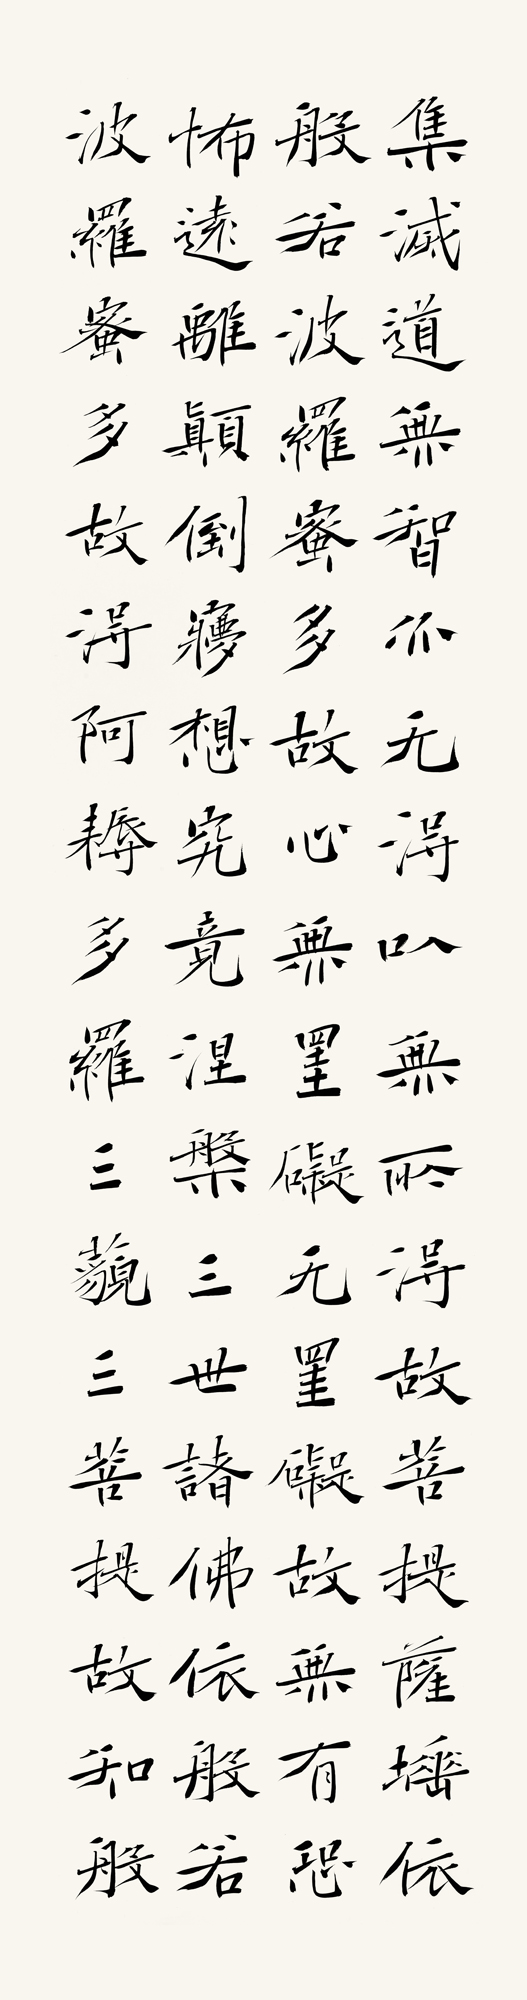 集滅道無智亦无得以無所得故菩提薩埵依
般若波羅蜜多故心無罣礙无罣礙故無有恐
怖遠離顛倒夢想究竟涅槃三世諸佛依般若
波羅蜜多故得阿耨多羅三藐三菩提故知般